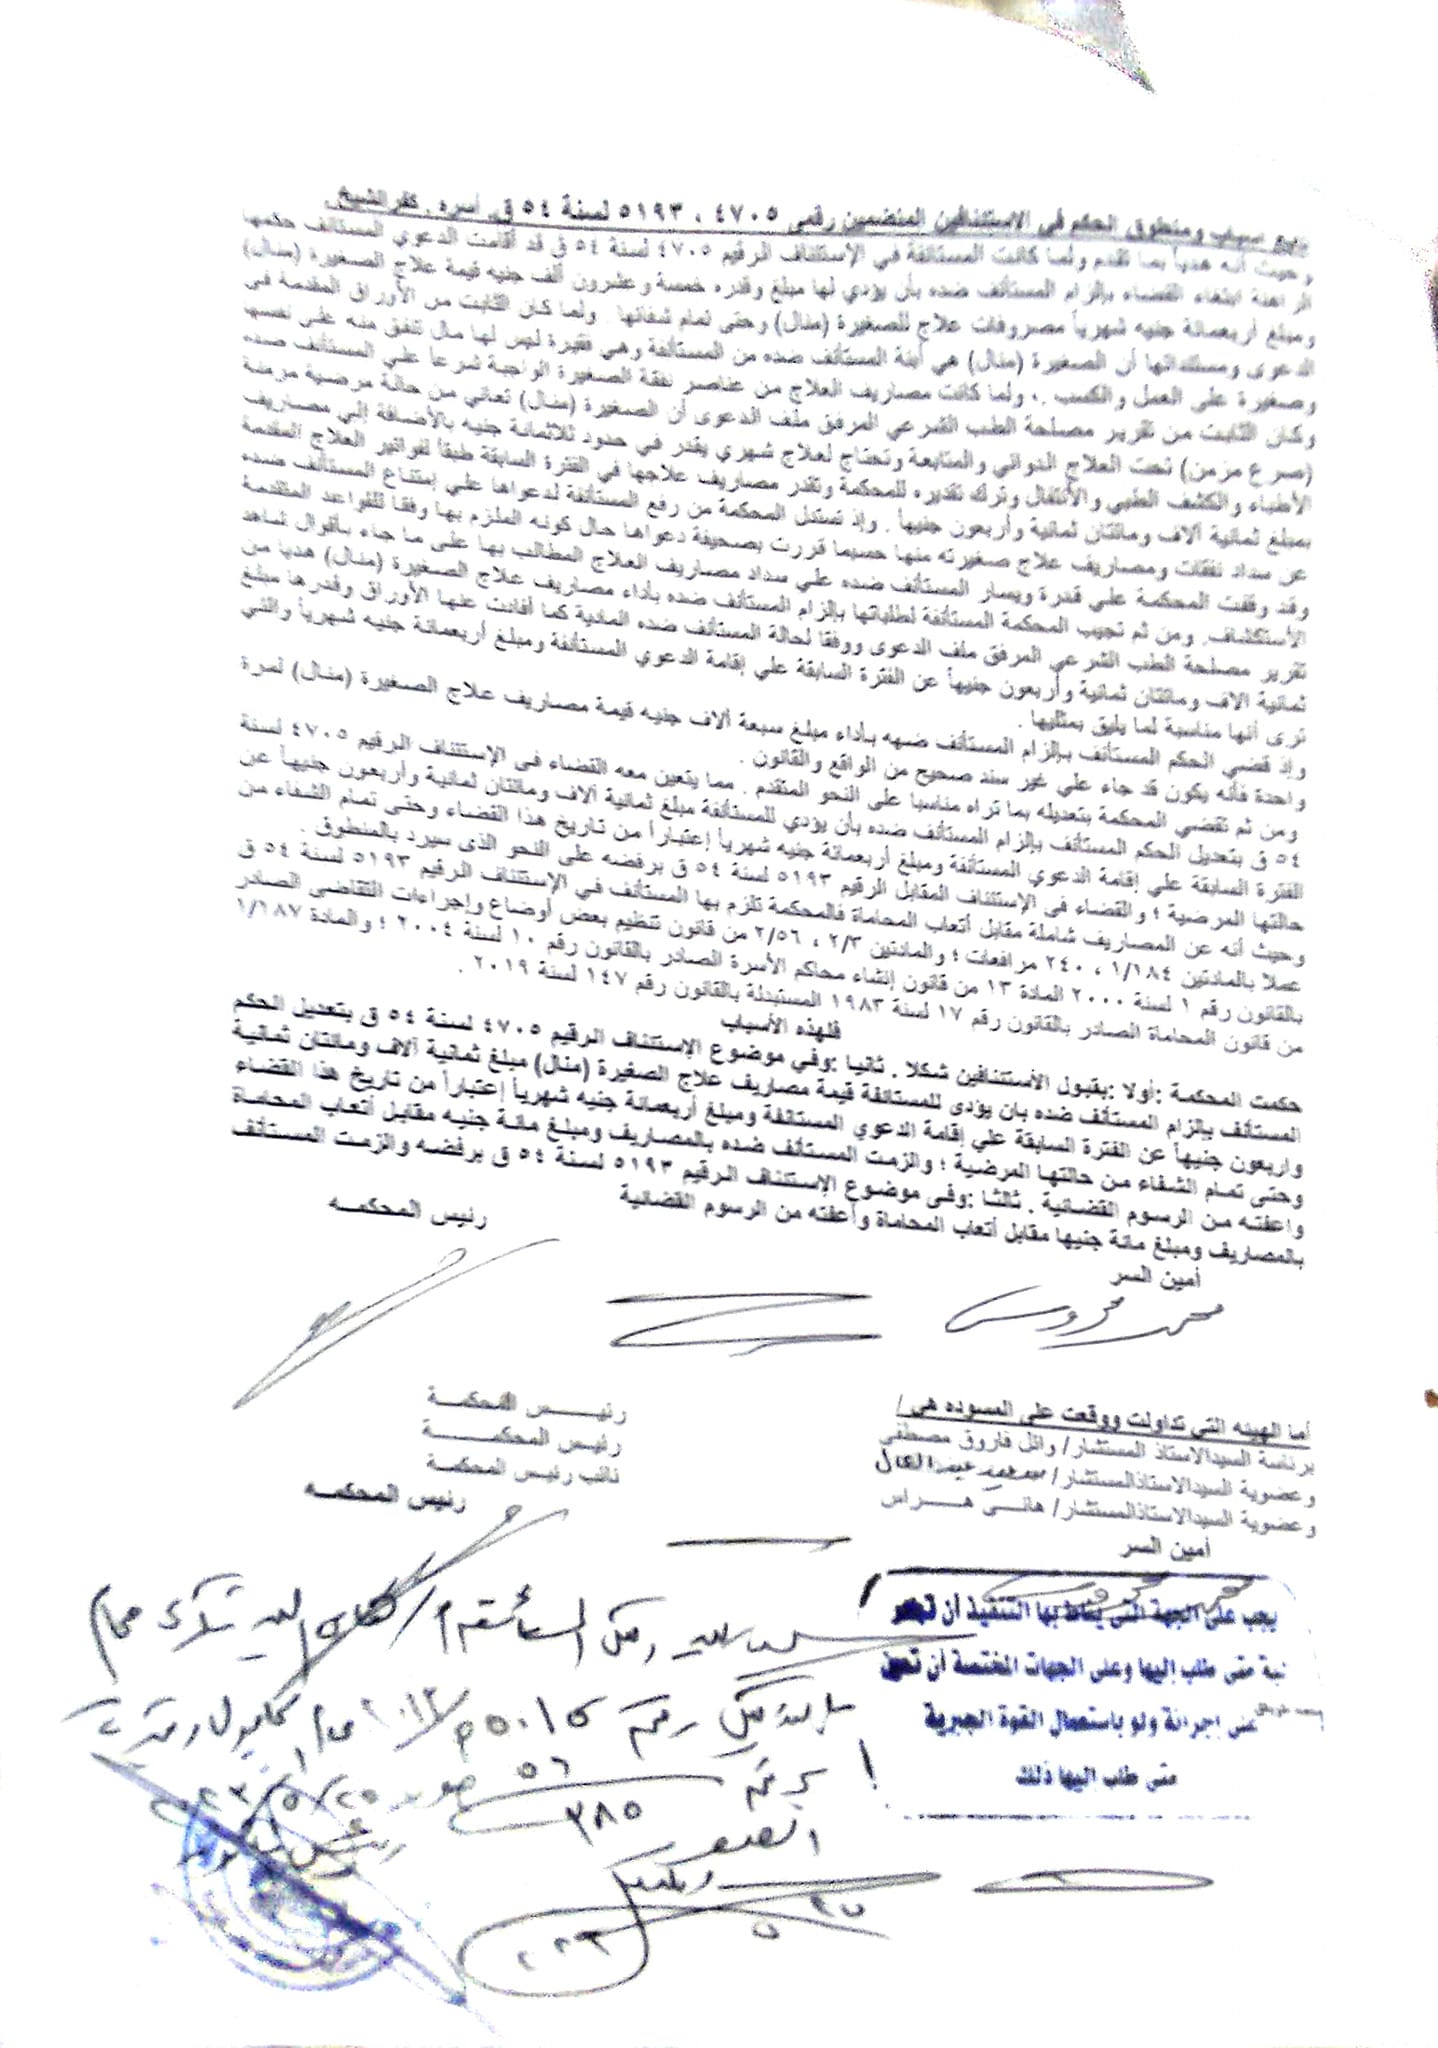 تابع اسباب ومنطوق الحكم في الاستئنافين المنضمين رقمى ٤٧٠٥ ، ٥١٩٣ لسنة ٥٤ ق. أسره . كفر الشيخ.
وحيث أنه هدياً بما تقدم ولما كانت المستأنفة في الإستئناف الرقيم ٤٧٠٥ لسنة ٥٤ ق قد أقامت الدعوي المستأنف حكمها
الراهنة ابتغاء القضاء بإلزام المستأنف ضده بأن يؤدي لها مبلغ وقدره خمسة وعشرون ألف جنيه قيمة علاج الصغيرة (منال)
ومبلغ أربعمائة جنيه شهرياً مصروفات علاج للصغيرة (منال) وحتى تمام شفائها . ولما كان الثابت من الأوراق المقدمة في
الدعوى ومستنداتها أن الصغيرة (منال) هي أبنة المستأنف ضده من المستأنفة وهي فقيرة ليس لها مال تنفق منه على نفسها
وصغيرة على العمل والكسب .، ولما كانت مصاريف العلاج من عناصر نفقة الصغيرة الواجبة شرعا علي المستأنف ضده
وكان الثابت من تقرير مصلحة الطب الشرعي المرفق ملف الدعوى أن الصغيرة (منال) تعاني من حالة مرضية مزمنة
(صرع مزمن) تحت العلاج الدوائي والمتابعة وتحتاج لعلاج شهري يقدر في حدود ثلاثمائة جنيه بالأضافة إلي مصاريف
الأطباء والكشف الطبي والأنتقال وترك تقديره للمحكمة وتقدر مصاريف علاجها في الفترة السابقة طبقا لفواتير العلاج المقدمة
بمبلغ ثمانية ألاف ومائتان ثمانية وأربعون جنيهاً . وإذ تستدل المحكمة من رفع المستأنفة لدعواها علي إمتناع المستأنف ضده
عن سداد نفقات ومصاريف علاج صغيرته منها حسبما قررت بصحيفة دعواها حال كونه الملزم بها وفقا للقواعد المتقدمة
وقد وقفت المحكمة علي قدرة ويسار المستأنف ضده علي سداد مصاريف العلاج المطالب بها على ما جاء بأقوال شاهد
الأستكشاف. ومن ثم تجيب المحكمة المستأنفة لطلباتها بإلزام المستأنف ضده بأداء مصاريف علاج الصغيرة (منال) هديا من
تقرير مصلحة الطب الشرعي المرفق ملف الدعوى ووفقا لحالة المستأنف ضده المادية كما أفادت عنها الأوراق وقدرها مبلغ
ثمانية الاف ومائتان ثمانية وأربعون جنيهاً عن الفترة السابقة علي إقامة الدعوي المستأنفة ومبلغ أربعمائة جنيه شهرياً والتي
ترى أنها مناسبة لما يليق بمثليها .
وإذ قضي الحكم المستأنف بإلزام المستأنف ضبه بأداء مبلغ سبعة ألاف جنيه قيمة مصاريف علاج الصغيرة (منال) لمرة
واحدة فأنه يكون قد جاء علي غير سند صحيح من الواقع والقانون .
ومن ثم تقضي المحكمة بتعديله بما تراه مناسبا على النحو المتقدم . مما يتعين معه القضاء فى الإستئناف الرقيم ٤٧٠٥ لسنة
٥٤ ق بتعديل الحكم المستأنف بإلزام المستأنف ضده بأن يؤدي للمستأنفة مبلغ ثمانية ألاف ومائتان ثمانية وأربعون جنيهاً عن
الفترة السابقة علي إقامة الدعوي المستأنفة ومبلغ أربعمائة جنيه شهرياً إعتباراً من تاريخ هذا القضاء وحتى تمام الشفاء من
حالتها المرضية ؛ والقضاء فى الإستئناف المقابل الرقيم ٥١٩٣ لسنة ٥٤ ق برفضه على النحو الذى سيرد بالمنطوق .
وحيث أنه عن المصاريف شاملة مقابل أتعاب المحاماة فالمحكمة تلزم بها المستأنف في الإستئناف الرقيم ٥١٩٣ لسنة ٥٤ ق
عملا بالمادتين ١/١٨٤ ، ٢٤٠ مرافعات ؛ والمادتين ٢/٣ ، ٢/٥٦ من قانون تنظيم بعض أوضاع وإجراءات التقاضى الصادر
بالقانون رقم ١ لسنة ٢٠٠٠ المادة ١٣ من قانون إنشاء محاكم الأسرة الصادر بالقانون رقم ١٠ لسنة ٢٠٠٤ ؛ والمادة ١/١٨٧
من قانون المحاماة الصادر بالقانون رقم ١٧ لسنة ١٩٨٣ المستبدلة بالقانون رقم ١٤٧ لسنة ٢٠١٩ .
فلهذه الأسباب
حكمت المحكمة :أولا :بقبول الأستئنافين شكلا . ثانيا :وفي موضوع الإستئناف الرقيم ٤٧٠٥ لسنة ٥٤ ق بتعديل الحكم
المستأنف بإلزام المستأنف ضده بان يؤدى للمستانفة قيمة مصاريف علاج الصغيرة (منال) مبلغ ثمانية ألاف ومائتان ثمانية
واربعون جنيهاً عن الفترة السابقة علي إقامة الدعوي المستانفة ومبلغ أربعمائة جنيه شهرياً إعتباراً من تاريخ هذا القضاء
وحتى تمام الشفاء من حالتها المرضية ؛ والزمت المستأنف ضده بالمصاريف ومبلغ مائة جنيه مقابل أتعاب المحاماة
واعفته من الرسوم القضائية . ثالثا :وفى موضوع الإستئناف الرقيم ٥١٩٣ لسنة ٥٤ ق برفضه والزمت المستأنف
بالمصاريف ومبلغ مائة جنيها مقابل أتعاب المحاماة وأعفته من الرسوم القضائية
أمين السر
رئيس المحكمه
أما الهيئه التى تداولت ووقعت على المسوده هى /
برئاسة السيدالاستاذ المستشار/ وائل فاروق مصطفى رئيس المحكمة
وعضوية السيدالاستاذالمستشار/ محمد عبدالعال رئيس المحكمة
وعضوية السيدالاستاذالمستشار/ هانى هراس نائب رئيس المحكمة
أمين السر
رئيس المحكمه
يجب على الجهة التى يناط بها التنفيذ أن تبادر
متى طلب إليها وعلى الجهات المختصة أن تعين
على إجرائة ولو باستعمال القوة الجبرية
متى طلب اليها ذلك
٣٨٥